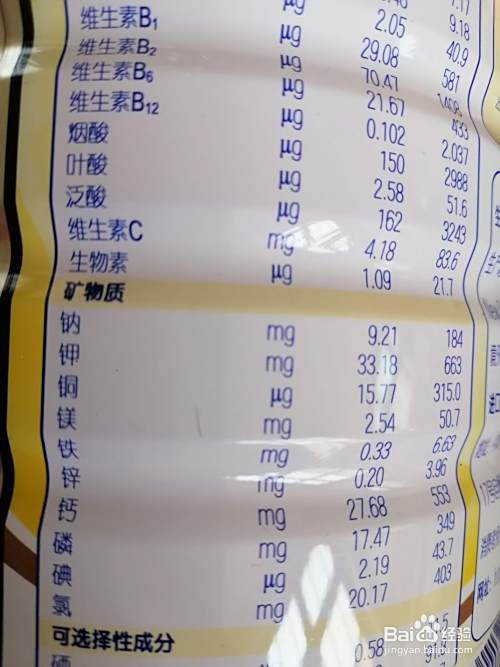 μg 2.05 40.9
维生素B₁ μg 29.08 581
维生素B₂ μg 70.47 1408
维生素B₆ μg 21.67 433
维生素B₁₂ μg 0.102 2.037
烟酸 μg 150 2988
叶酸 μg 2.58 51.6
泛酸 μg 162 3243
维生素C mg 4.18 83.6
生物素 μg 1.09 21.7
矿物质
钠 mg 9.21 184
钾 mg 33.18 663
铜 μg 15.77 315.0
镁 mg 2.54 50.7
铁 mg 0.33 6.63
锌 mg 0.20 3.96
钙 mg 27.68 553
磷 mg 17.47 349
碘 μg 2.19 43.7
氯 mg 20.17 403
可选择性成分
硒 0.58
Bai 经验
jingyan.baidu.com